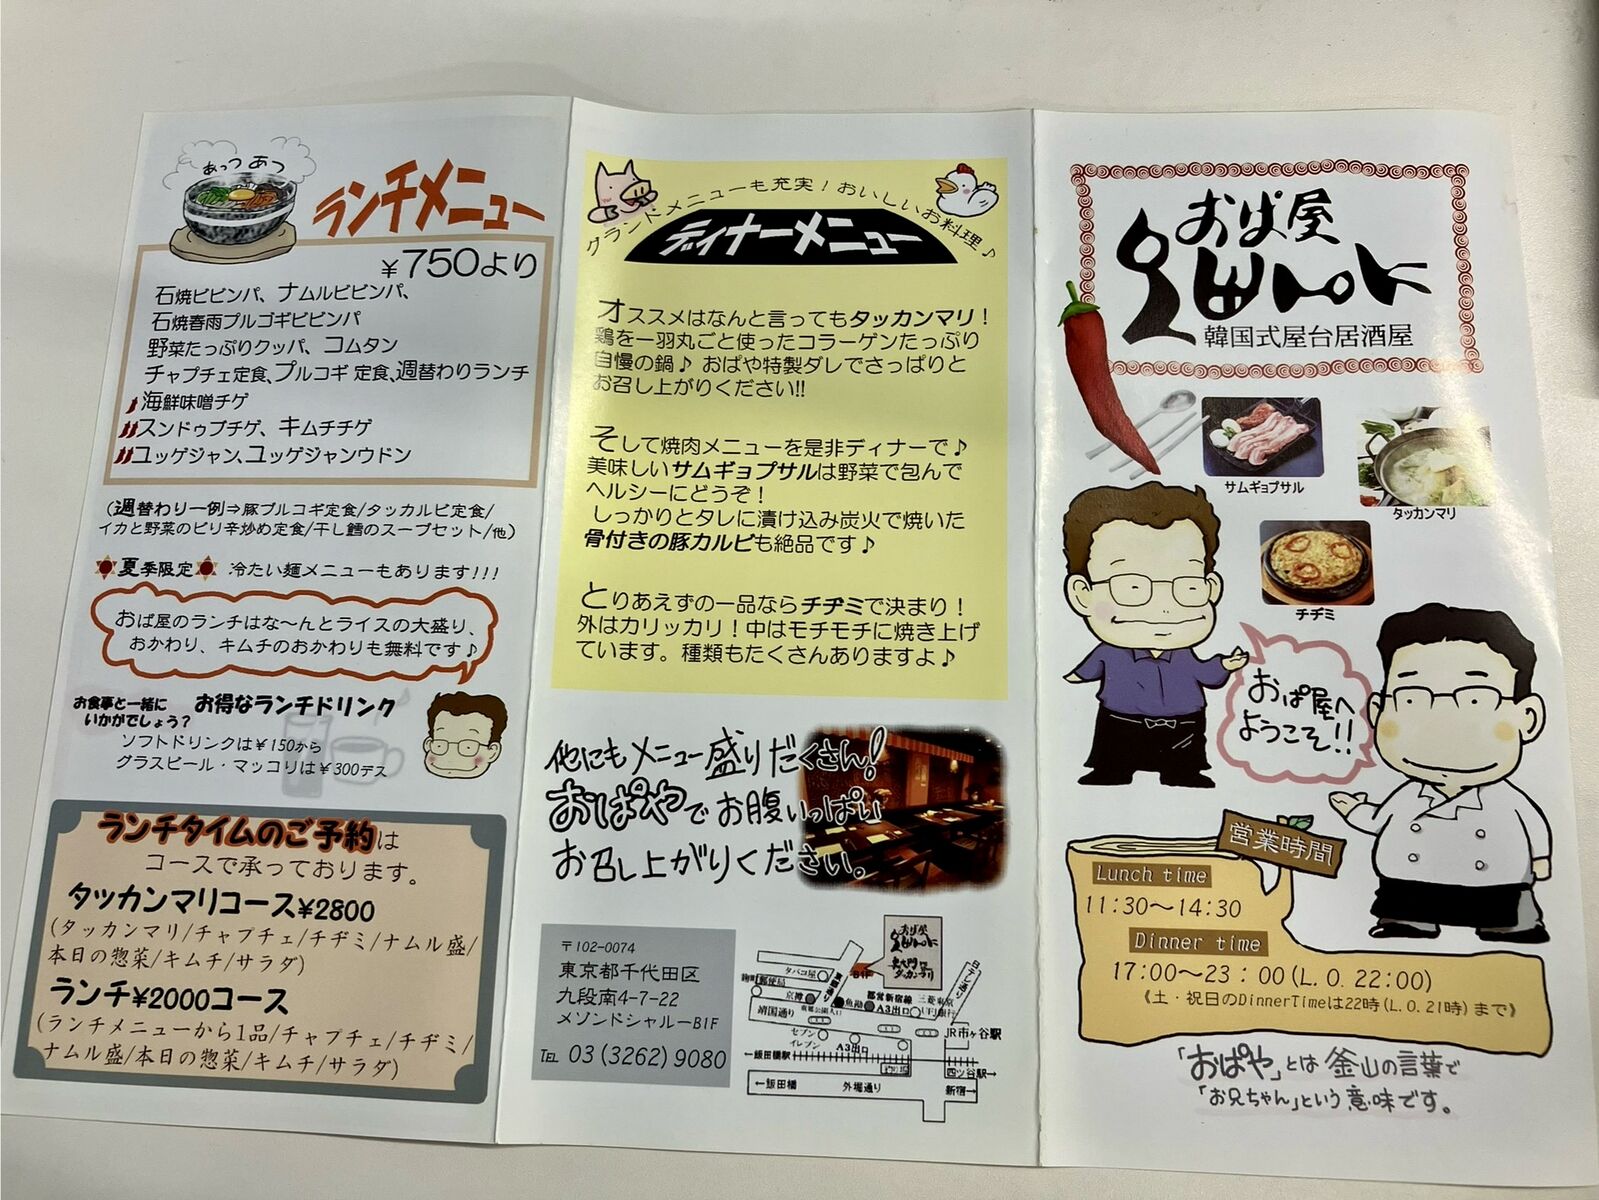 あっつあつ
ランチメニュー
¥750より
石焼ビビンパ、ナムルビビンパ、
石焼春雨プルゴギビビンパ
野菜たっぷりクッパ、コムタン
チャプチェ定食、プルコギ定食、週替わりランチ
海鮮味噌チゲ
スンドゥブチゲ、キムチチゲ
ユッゲジャン、ユッゲジャンウドン
(週替わり一例⇒豚プルコギ定食/タッカルビ定食/
イカと野菜のピリ辛炒め定食/干し鱈のスープセット/他)
夏季限定 冷たい麺メニューもあります!!!
おぱ屋のランチはな〜んとライスの大盛り、
おかわり、キムチのおかわりも無料です♪
お食事と一緒に
いかがでしょう?
お得なランチドリンク
ソフトドリンクは¥150から
グラスビール・マッコリは¥300デス
ランチタイムのご予約は
コースで承っております。
タッカンマリコース¥2800
(タッカンマリ/チャプチェ/チヂミ/ナムル盛/
本日の惣菜/キムチ/サラダ)
ランチ¥2000コース
(ランチメニューから1品/チャプチェ/チヂミ/
ナムル盛/本日の惣菜/キムチ/サラダ)
グランドメニューも充実!おいしいお料理♪
ディナーメニュー
オススメはなんと言ってもタッカンマリ!
鶏を一羽丸ごと使ったコラーゲンたっぷり
自慢の鍋♪ おぱや特製ダレでさっぱりと
お召し上がりください!!
そして焼肉メニューを是非ディナーで♪
美味しいサムギョプサルは野菜で包んで
ヘルシーにどうぞ!
しっかりとタレに漬け込み炭火で焼いた
骨付きの豚カルビも絶品です♪
とりあえずの一品ならチヂミで決まり!
外はカリッカリ!中はモチモチに焼き上げ
ています。種類もたくさんありますよ♪
他にもメニュー盛りだくさん!
おぱやでお腹いっぱい
お召し上がりください。
〒102-0074
東京都千代田区
九段南4-7-22
メゾンドシャルーB1F
TEL 03(3262)9080
おぱ屋
東大門
タッカンマリ
B1F
タバコ屋
麹町郵便局
京樽
魚勘
都営新宿線
A3出口
三菱東京
UFJ銀行
日テレ通り
靖国通り
セブン
イレブン
A3出口
JR市ヶ谷駅
←飯田橋駅
四ツ谷駅→
←飯田橋
外堀通り
新宿→
おぱ屋
韓国式屋台居酒屋
サムギョプサル
タッカンマリ
チヂミ
おぱ屋へ
ようこそ!!
営業時間
Lunch time
11:30〜14:30
Dinner time
17:00〜23:00(L.O.22:00)
《土・祝日のDinnerTimeは22時(L.O.21時)まで》
「おぱや」とは釜山の言葉で
「お兄ちゃん」という意味です。